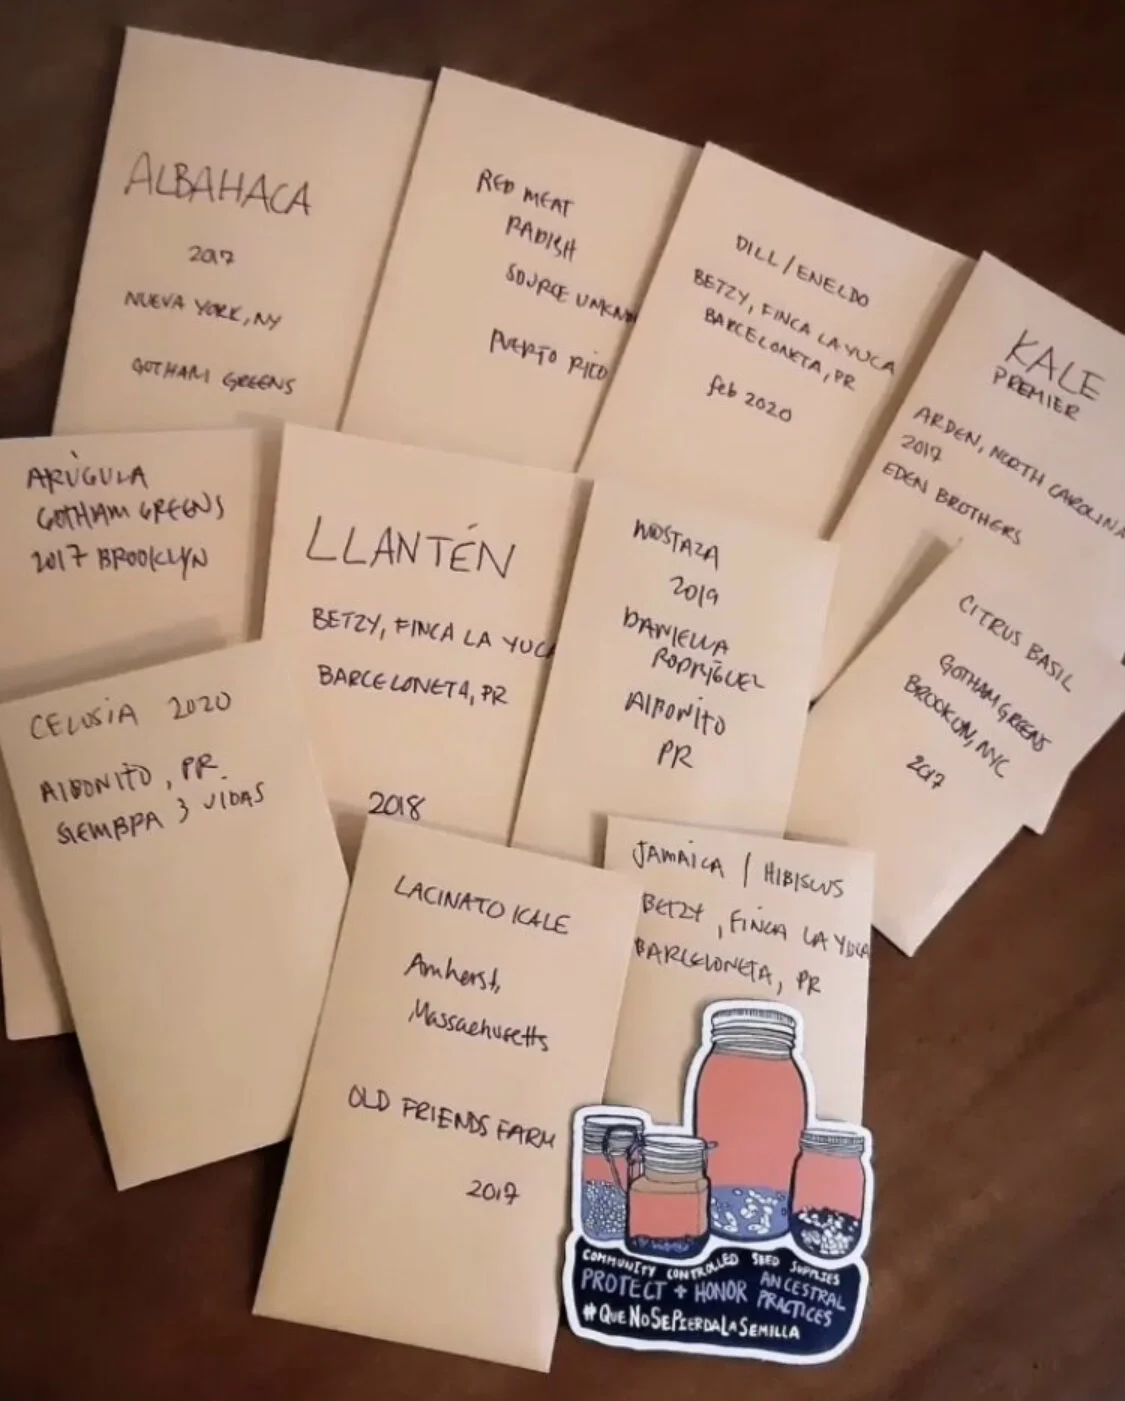 ALBAHACA
2017
NUEVA YORK, NY
GOTHAM GREENS
RED MEAT
RADISH
SOURCE UNKNO
PUERTO RICO
DILL/ENELDO
BETZY, FINCA LA YUCA
BARCELONETA, PR
feb 2020
KALE
PREMIER
ARDEN, NORTH CAROLINA
2017
EDEN BROTHERS
ARÚGULA
GOTHAM GREENS
2017 BROOKLYN
LLANTÉN
BETZY, FINCA LA YUCA
BARCELONETA, PR
2018
MOSTAZA
2019
DANIELLA
RODRÍGUEZ
AIBONITO
PR
CITRUS BASIL
GOTHAM GREENS
BROOKLYN, NYC
2017
CELOSIA 2020
AIBONITO, PR
SIEMBRA 3 VIDAS
LACINATO KALE
Amherst,
Massachusetts
OLD FRIENDS FARM
2017
JAMAICA / HIBISCUS
BETZY, FINCA LA YUCA
BARCELONETA, PR
COMMUNITY CONTROLLED SEED SUPPLIES
PROTECT + HONOR ANCESTRAL
PRACTICES
#QUENOSEPIERDALASEMILLA